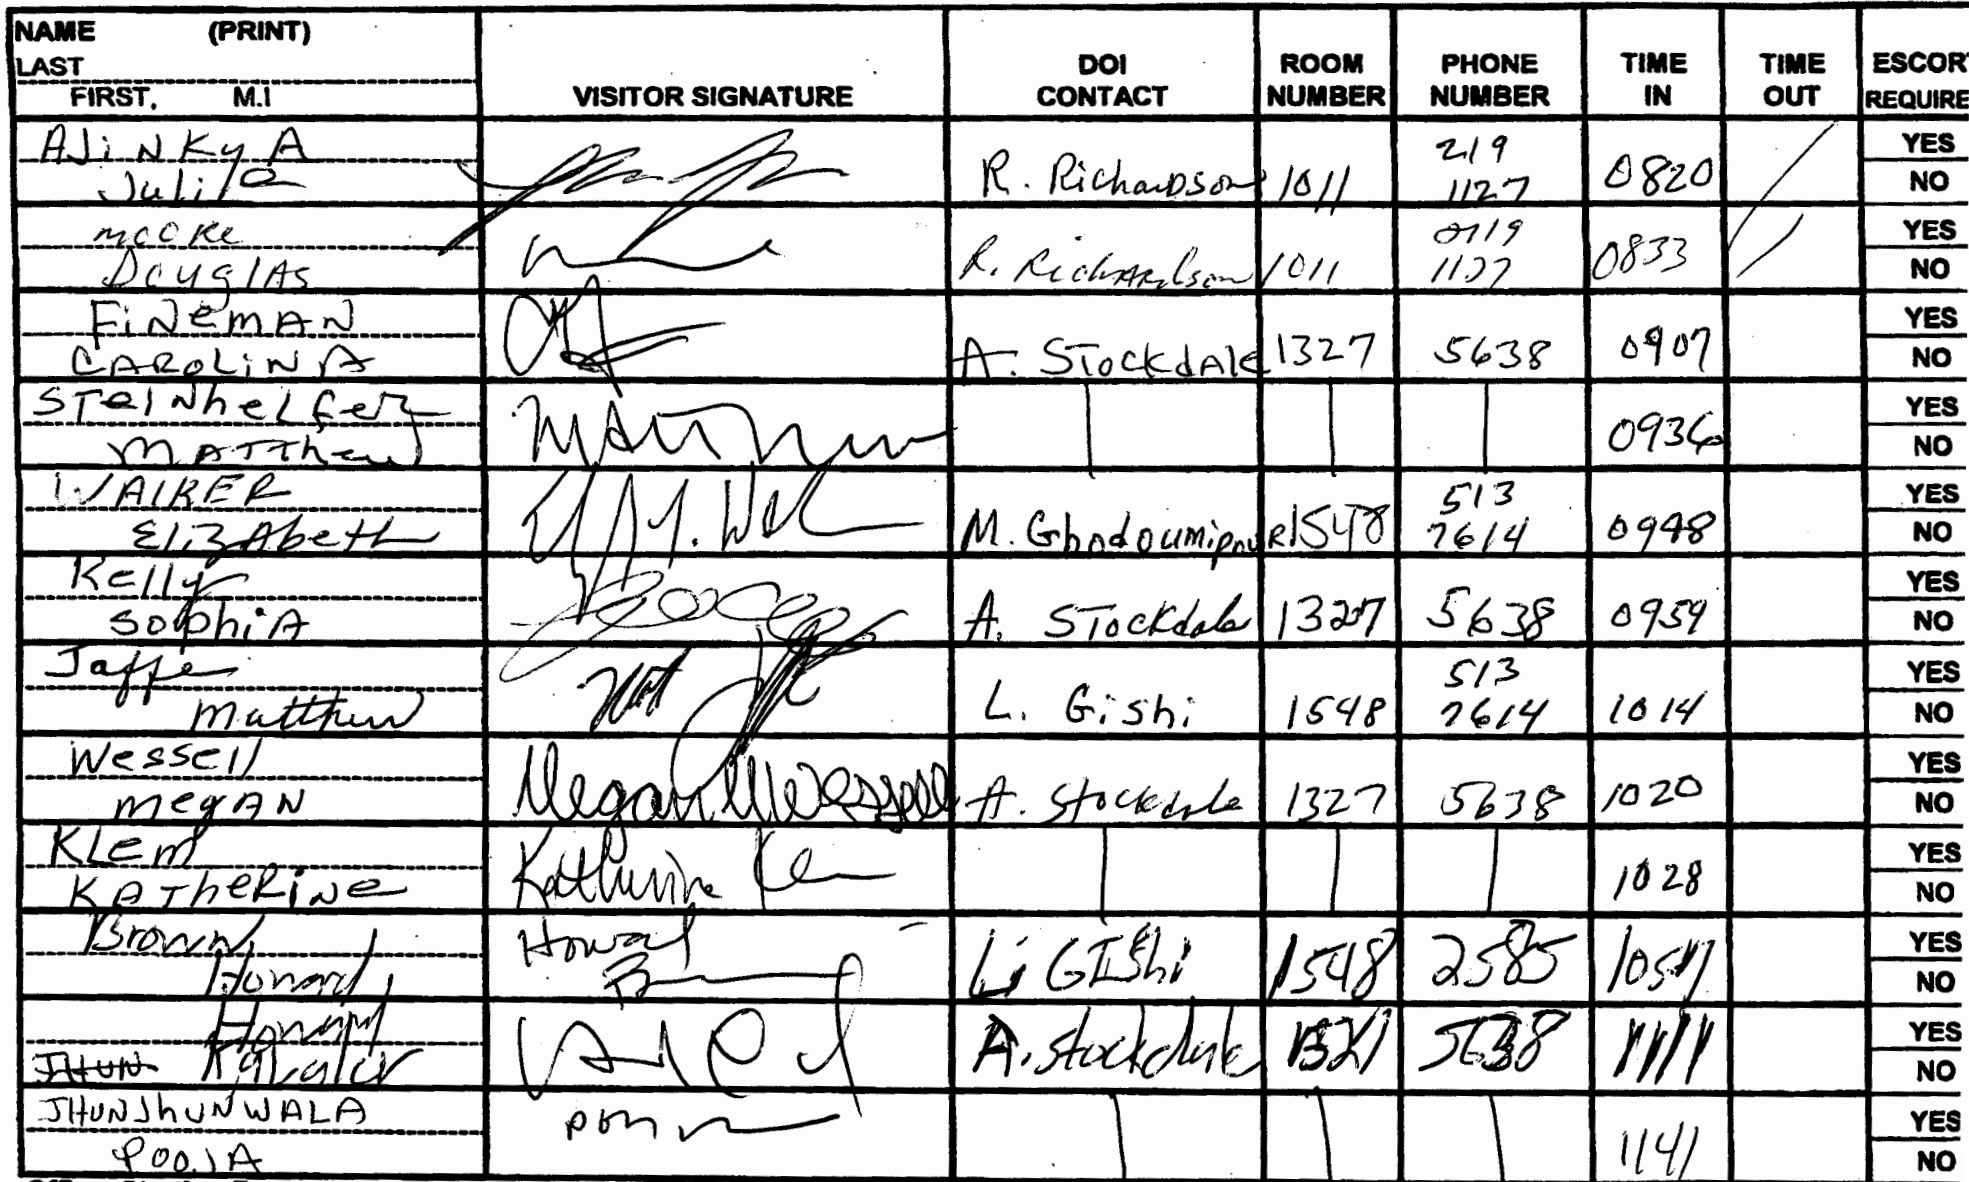 NAME (PRINT)
LAST
FIRST, M.I
VISITOR SIGNATURE
DOI CONTACT
ROOM NUMBER
PHONE NUMBER
TIME IN
TIME OUT
ESCORT REQUIRE
AJiNKyA
Julila
R. RichaRDson 1011 219 1127 0820
YES
NO
mooRe
DouglAs
R. RichARdson 1011 0833
YES
NO
FiNemAN
CAROLiNA
A. STockdAle 1327 5638 0907
YES
NO
STeiNheLfer
mATThew
MATThew
0936
YES
NO
WALKER
ElizAbeth
M. GhadoumipouR 1548 513 7614 0948
YES
NO
Kelly
SophiA
A. STockdale 1327 5638 0959
YES
NO
Jaffe
Matthew
Mat
L. Gishi 1548 513 7614 1014
YES
NO
Wessell
megAN
Megan Wessell
A. Stockdale 1327 5638 1020
YES
NO
KLem
KATheRiNe
Katherine Klem
1028
YES
NO
Brown,
Howard
Howard
L. GIShi 1548 2585
YES
NO
Howard
JHUN
A. Stockdale 5638 1111
YES
NO
JHUNJhUNWALA
POOJA
1141
YES
NO